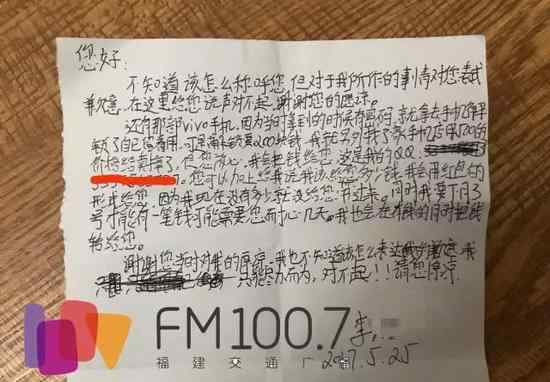 您好:
不知道该怎么称呼您,但对于我所作的事情对您表示
歉意,在这里给您说声对不起,谢谢您的原谅。
还有那部vivo手机,因为当时拿到的时候有密码,就拿去手机解
锁了自己留着用,可是解锁要200块钱,我就 手机店用700的
价格给卖掉了,但您放心,我会把钱给您,这是我的QQ:
您可以加上给我说我该给您多少钱,我会用红包的
形式给您,因为我现在没有多少 您 过来,同时我要下月3
号才能有一笔钱才能需要您耐心几天。我也会在有钱的同时把钱
转给您。
谢谢您当时对我的原谅,我也不知道该怎么表达我的 ,我
只 只能尽力而为,对不起!!请您原谅
李
2017.5.25
FM100.7
福建交通广播